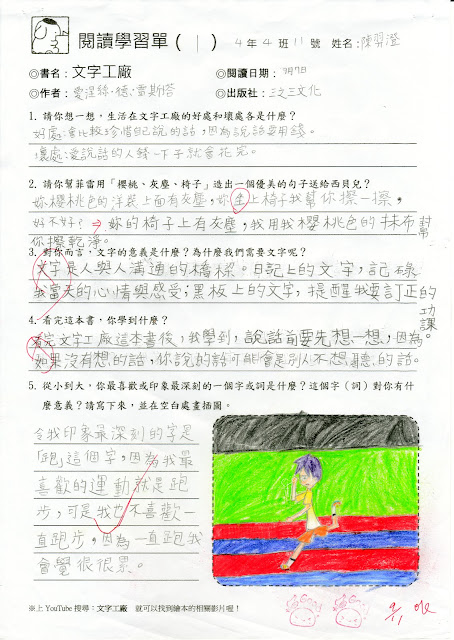 閱讀學習單（1） 4年4班11號 姓名：陳羿澄
◎書名：文字工廠 ◎閱讀日期：9月7日
◎作者：愛涅絲·德·雷斯塔 ◎出版社：三之三文化
1. 請你想一想，生活在文字工廠的好處和壞處各是什麼？
好處：會比較珍惜自己說的話，因為說話要用錢。
壞處：愛說話的人錢一下子就會花完。
2. 請你幫菲雷用「櫻桃、灰塵、椅子」造出一個優美的句子送給西貝兒？
妳櫻桃色的洋裝上面有灰塵，妳坐上椅子我幫你擦一擦，
好不好？⇒妳的椅子上有灰塵，我用我櫻桃色的抹布幫
你擦乾淨。
3. 對你而言，文字的意義是什麼？為什麼我們需要文字呢？
文字是人與人溝通的橋樑。日記上的文字，記碌
我當天的心情與感受；黑板上的文字，提醒我要訂正的
功課。
4. 看完這本書，你學到什麼？
看完文字工廠這本書後，我學到，說話前要先想一想，因為。
如果沒有想的話，你說的話可能會是別人不想聽的話。
5. 從小到大，你最喜歡或印象最深刻的一個字或詞是什麼？這個字（詞）對你有什
麼意義？請寫下來，並在空白處畫插圖。
令我印象最深刻的字是
「跑」這個字，因為我最
喜歡的運動就是跑
步，可是我也不喜歡一
直跑步，因為一直跑我
會覺很很累。
※上 YouTube 搜尋：文字工廠 就可以找到繪本的相關影片喔！